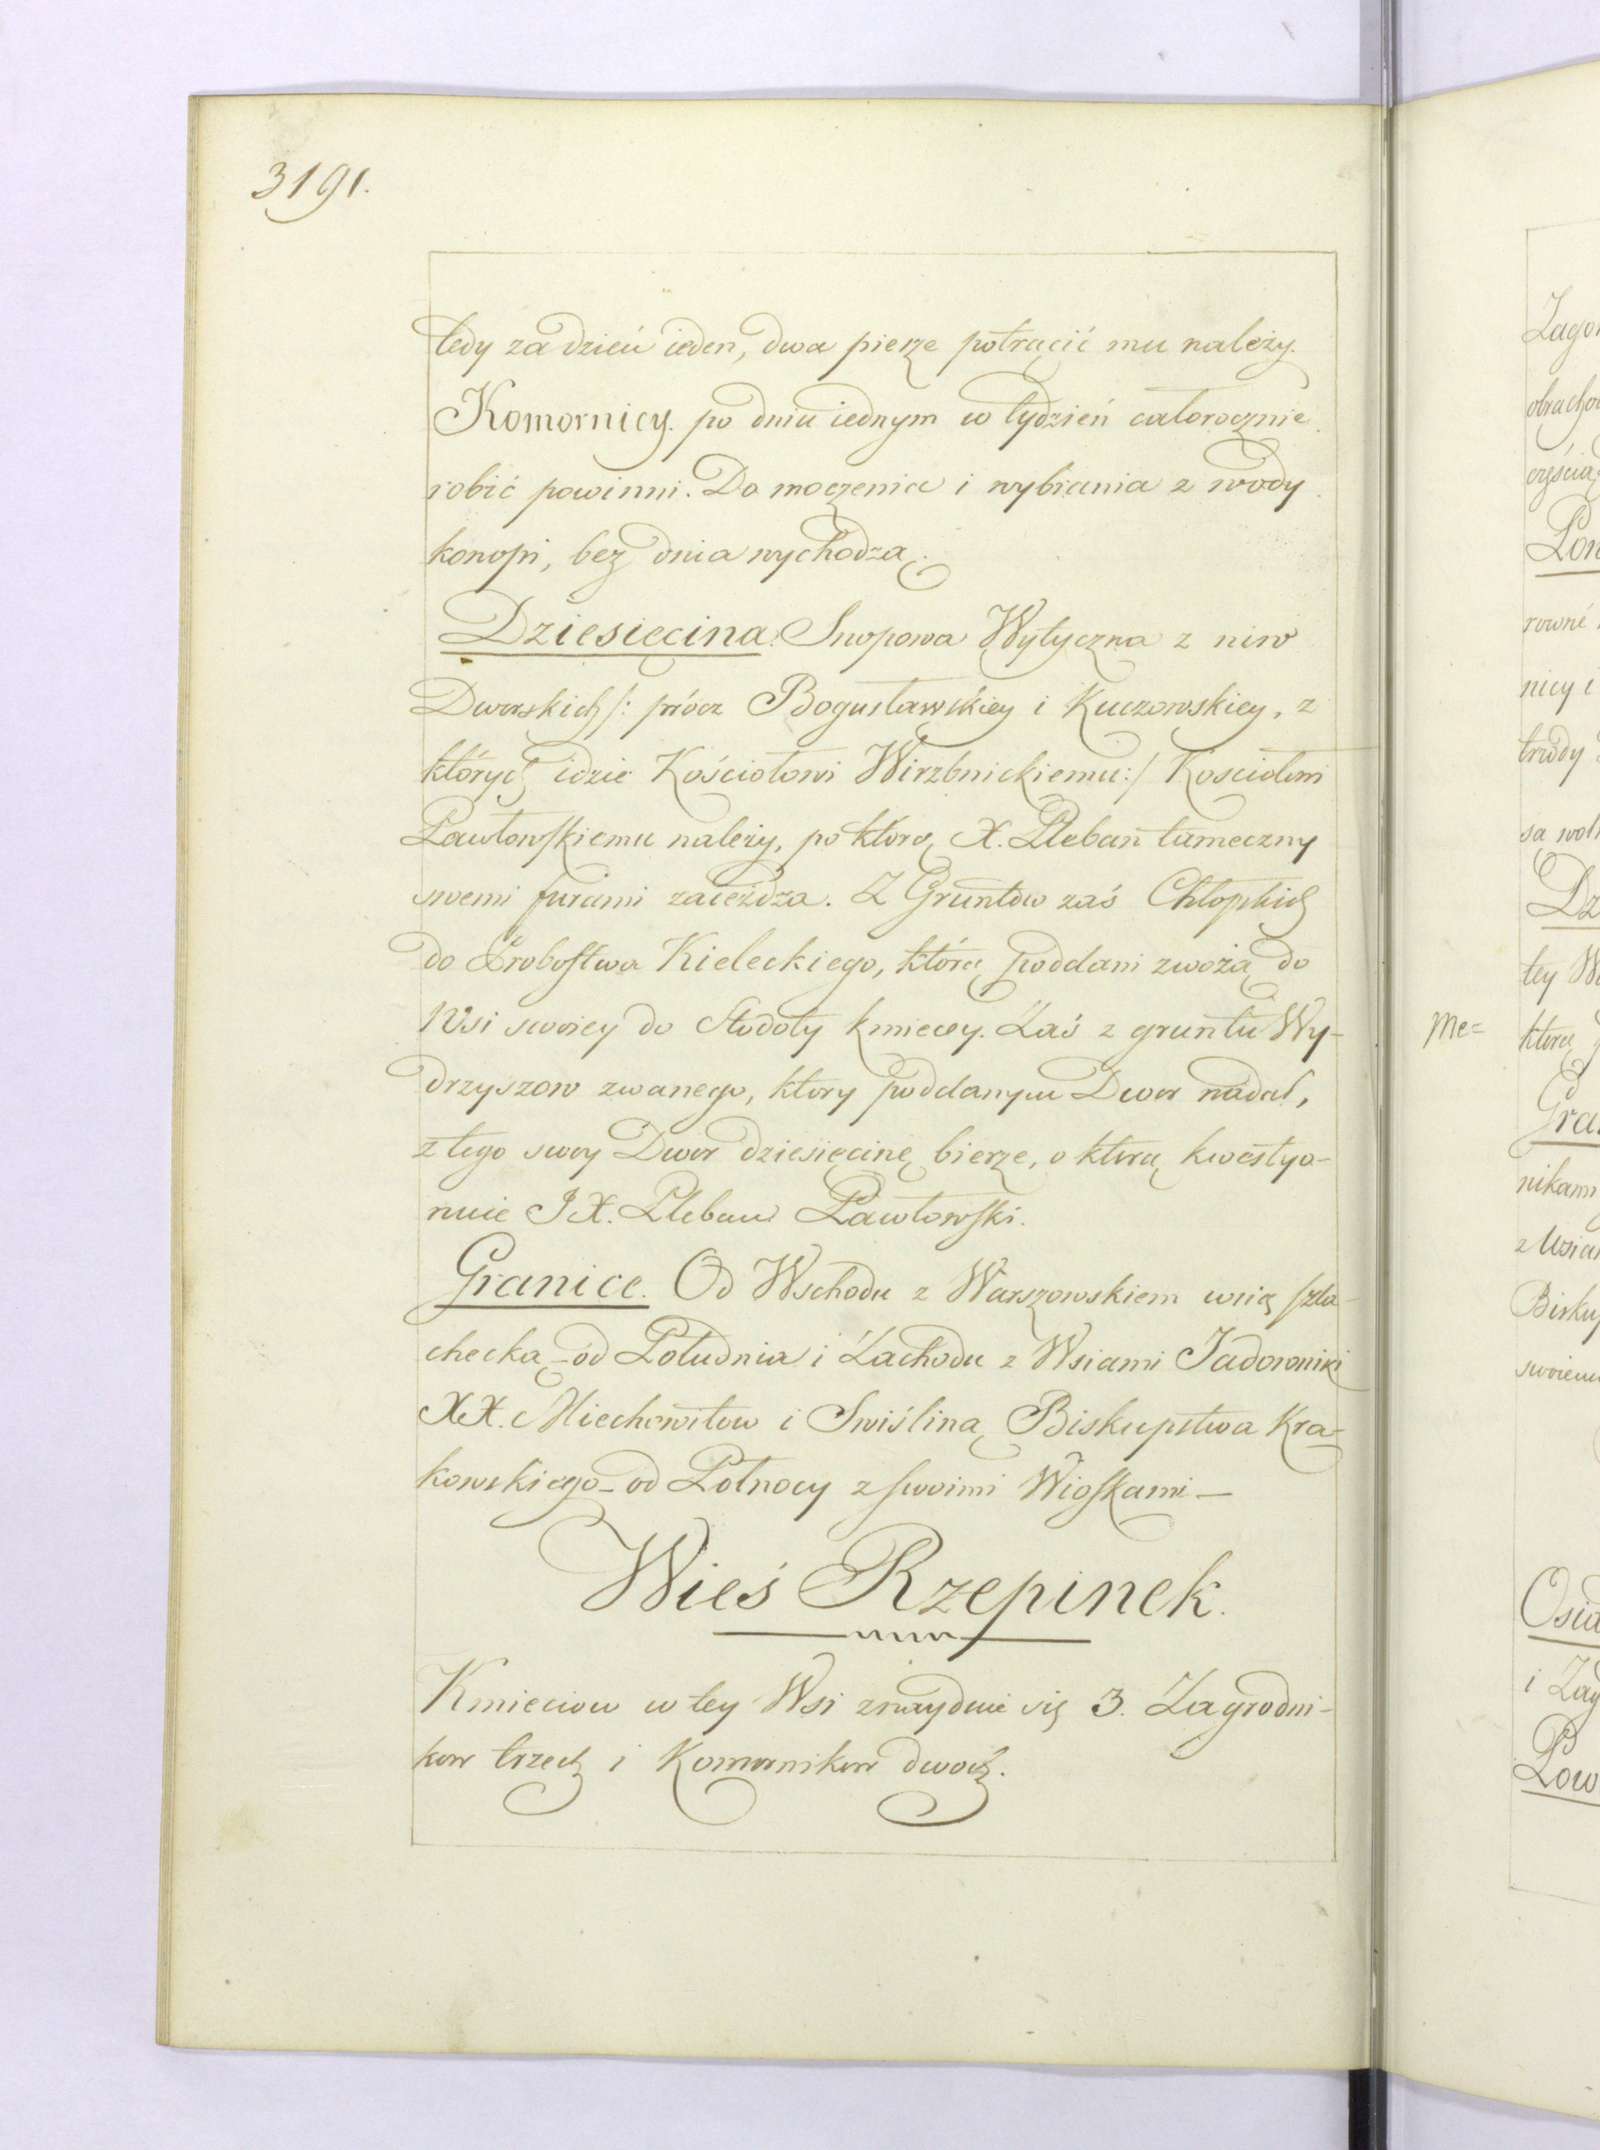 3191.
tedy za dzień ieden, dwa pierze potrącić mu należy.
Komornicy. po dniu iednym w tydzień całorocznie
robić powinni. Do moczenia i wybiania z wody
konopi, bez dnia wychodzą.
Dziesięcina. Snopowa Wytyczna z niw
Dworskich /: prócz Bogusławskiey i Kuczowskiey, z
których idzie Kościołowi Wirzbnickiemu :/ Kosciołowi
Pawłowskiemu należy, po którą X. Pleban tameczny
swemi furami zaieżdza. Z Gruntów zaś Chłopskich
do Probostwa Kieleckiego, którą poddani zwożą do
Wsi swoiey do Stodoły kmiecey. Zaś z gruntu Wy-
drzyszow zwanego, ktory poddanym Dwor nadał,
z tego swoy Dwor dziesięcinę bierze, o ktorą kwestyo-
nuie JX. Pleban Pawłowski.
Granice. Od Wschodu z Warszowskiem wsią szla-
checką - od Południa i Zachodu z Wsiami Jadowniki
XX. Miechowitow i Swiśliną Biskupstwa Kra-
kowskiego - od Połnocy z swoimi Wioskami -
Wieś Rzepinek.
Kmieciow w tey Wsi znayduie się 3. Zagrodni-
kow trzech i Komornikow dwoch.
Zagro
obracho
częścią
Pow
rowné
nicy i
trwdy
są wol
Dz
tey W
Me=
ktorą
Gra
nikami
z Wsia
Bisku
swoiem
Osia
i Zag
Pow